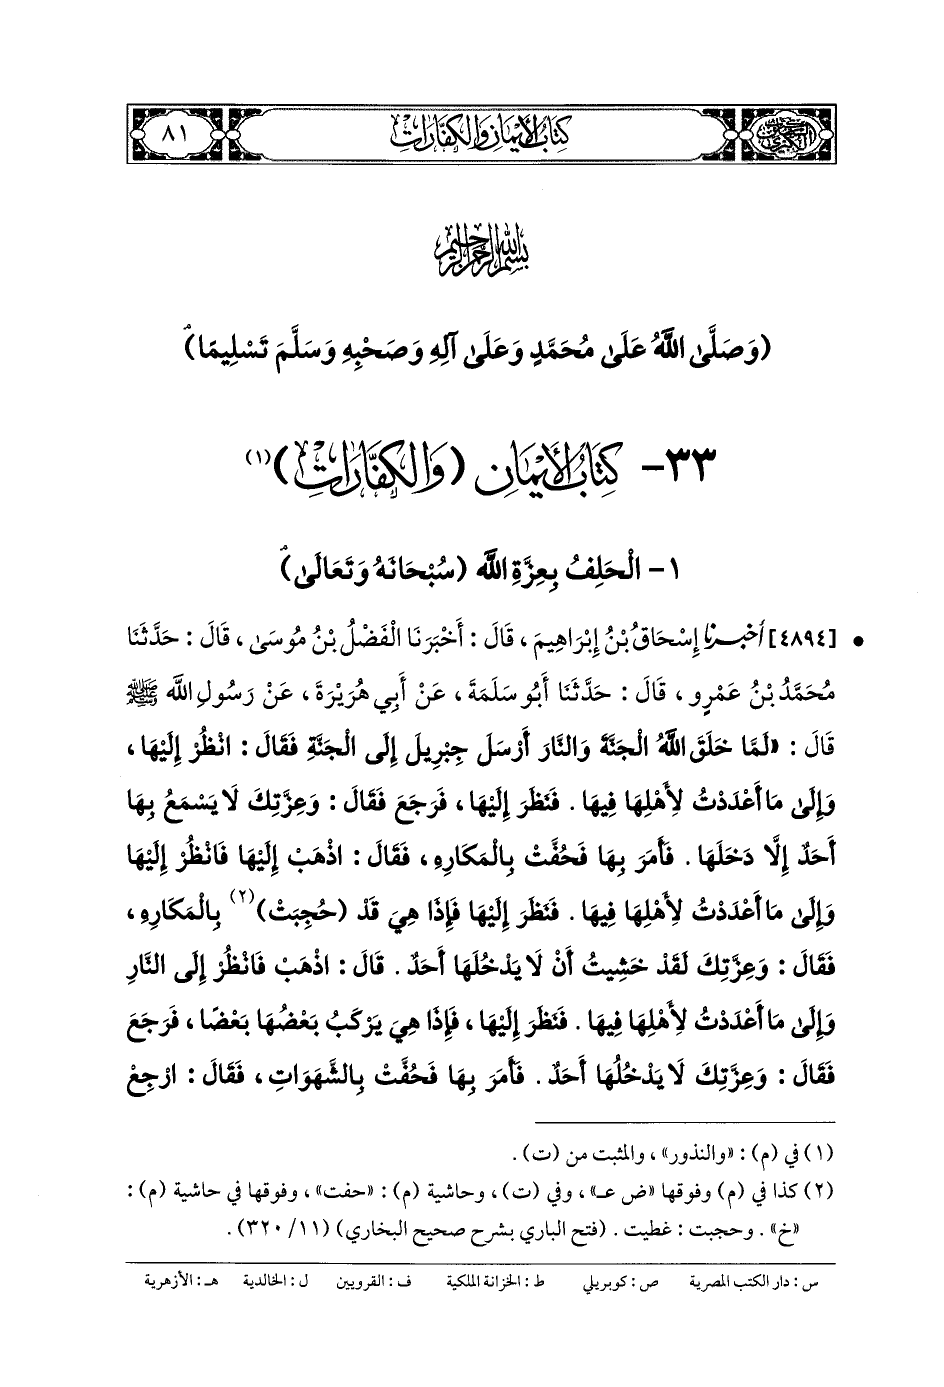 كتاب الأيمان والكفارات
٨١
بسم الله الرحمن الرحيم
(وَصَلَّىٰ اللَّهُ عَلَىٰ مُحَمَّدٍ وَعَلَىٰ آلِهِ وَصَحْبِهِ وَسَلَّمَ تَسْلِيمًا)
٣٣- كِتَابُ الأَيْمَانِ (وَالكَفَّارَاتِ)(١)
١- الْحَلِفُ بِعِزَّةِ اللَّهِ (سُبْحَانَهُ وَتَعَالَىٰ)
• [٤٨٩٤] أَخْبَرَنَا إِسْحَاقُ بْنُ إِبْرَاهِيمَ، قَالَ: أَخْبَرَنَا الْفَضْلُ بْنُ مُوسَىٰ، قَالَ: حَدَّثَنَا
مُحَمَّدُ بْنُ عَمْرٍو، قَالَ: حَدَّثَنَا أَبُو سَلَمَةَ، عَنْ أَبِي هُرَيْرَةَ، عَنْ رَسُولِ اللَّهِ ﷺ
قَالَ: «لَمَّا خَلَقَ اللَّهُ الْجَنَّةَ وَالنَّارَ أَرْسَلَ جِبْرِيلَ إِلَى الْجَنَّةِ فَقَالَ: انْظُرْ إِلَيْهَا،
وَإِلَىٰ مَا أَعْدَدْتُ لِأَهْلِهَا فِيهَا. فَنَظَرَ إِلَيْهَا، فَرَجَعَ فَقَالَ: وَعِزَّتِكَ لَا يَسْمَعُ بِهَا
أَحَدٌ إِلَّا دَخَلَهَا. فَأَمَرَ بِهَا فَحُفَّتْ بِالْمَكَارِهِ، فَقَالَ: اذْهَبْ إِلَيْهَا فَانْظُرْ إِلَيْهَا
وَإِلَىٰ مَا أَعْدَدْتُ لِأَهْلِهَا فِيهَا. فَنَظَرَ إِلَيْهَا فَإِذَا هِيَ قَدْ (حُجِبَتْ)(٢) بِالْمَكَارِهِ،
فَقَالَ: وَعِزَّتِكَ لَقَدْ خَشِيتُ أَنْ لَا يَدْخُلَهَا أَحَدٌ. قَالَ: اذْهَبْ فَانْظُرْ إِلَى النَّارِ
وَإِلَىٰ مَا أَعْدَدْتُ لِأَهْلِهَا فِيهَا. فَنَظَرَ إِلَيْهَا، فَإِذَا هِيَ يَرْكَبُ بَعْضُهَا بَعْضًا، فَرَجَعَ
فَقَالَ: وَعِزَّتِكَ لَا يَدْخُلُهَا أَحَدٌ. فَأَمَرَ بِهَا فَحُفَّتْ بِالشَّهَوَاتِ، فَقَالَ: ارْجِعْ
(١) في (م): «والنذور»، والمثبت من (ت).
(٢) كذا في (م) وفوقها «ض عـ»، وفي (ت)، وحاشية (م): «حفت»، وفوقها في حاشية (م):
«خ». وحجبت: غطيت. (فتح الباري بشرح صحيح البخاري) (١١/ ٣٢٠).
س: دار الكتب المصرية ص: كوبريلي ط: الخزانة الملكية ف: القرويين ل: الخالدية هـ: الأزهرية